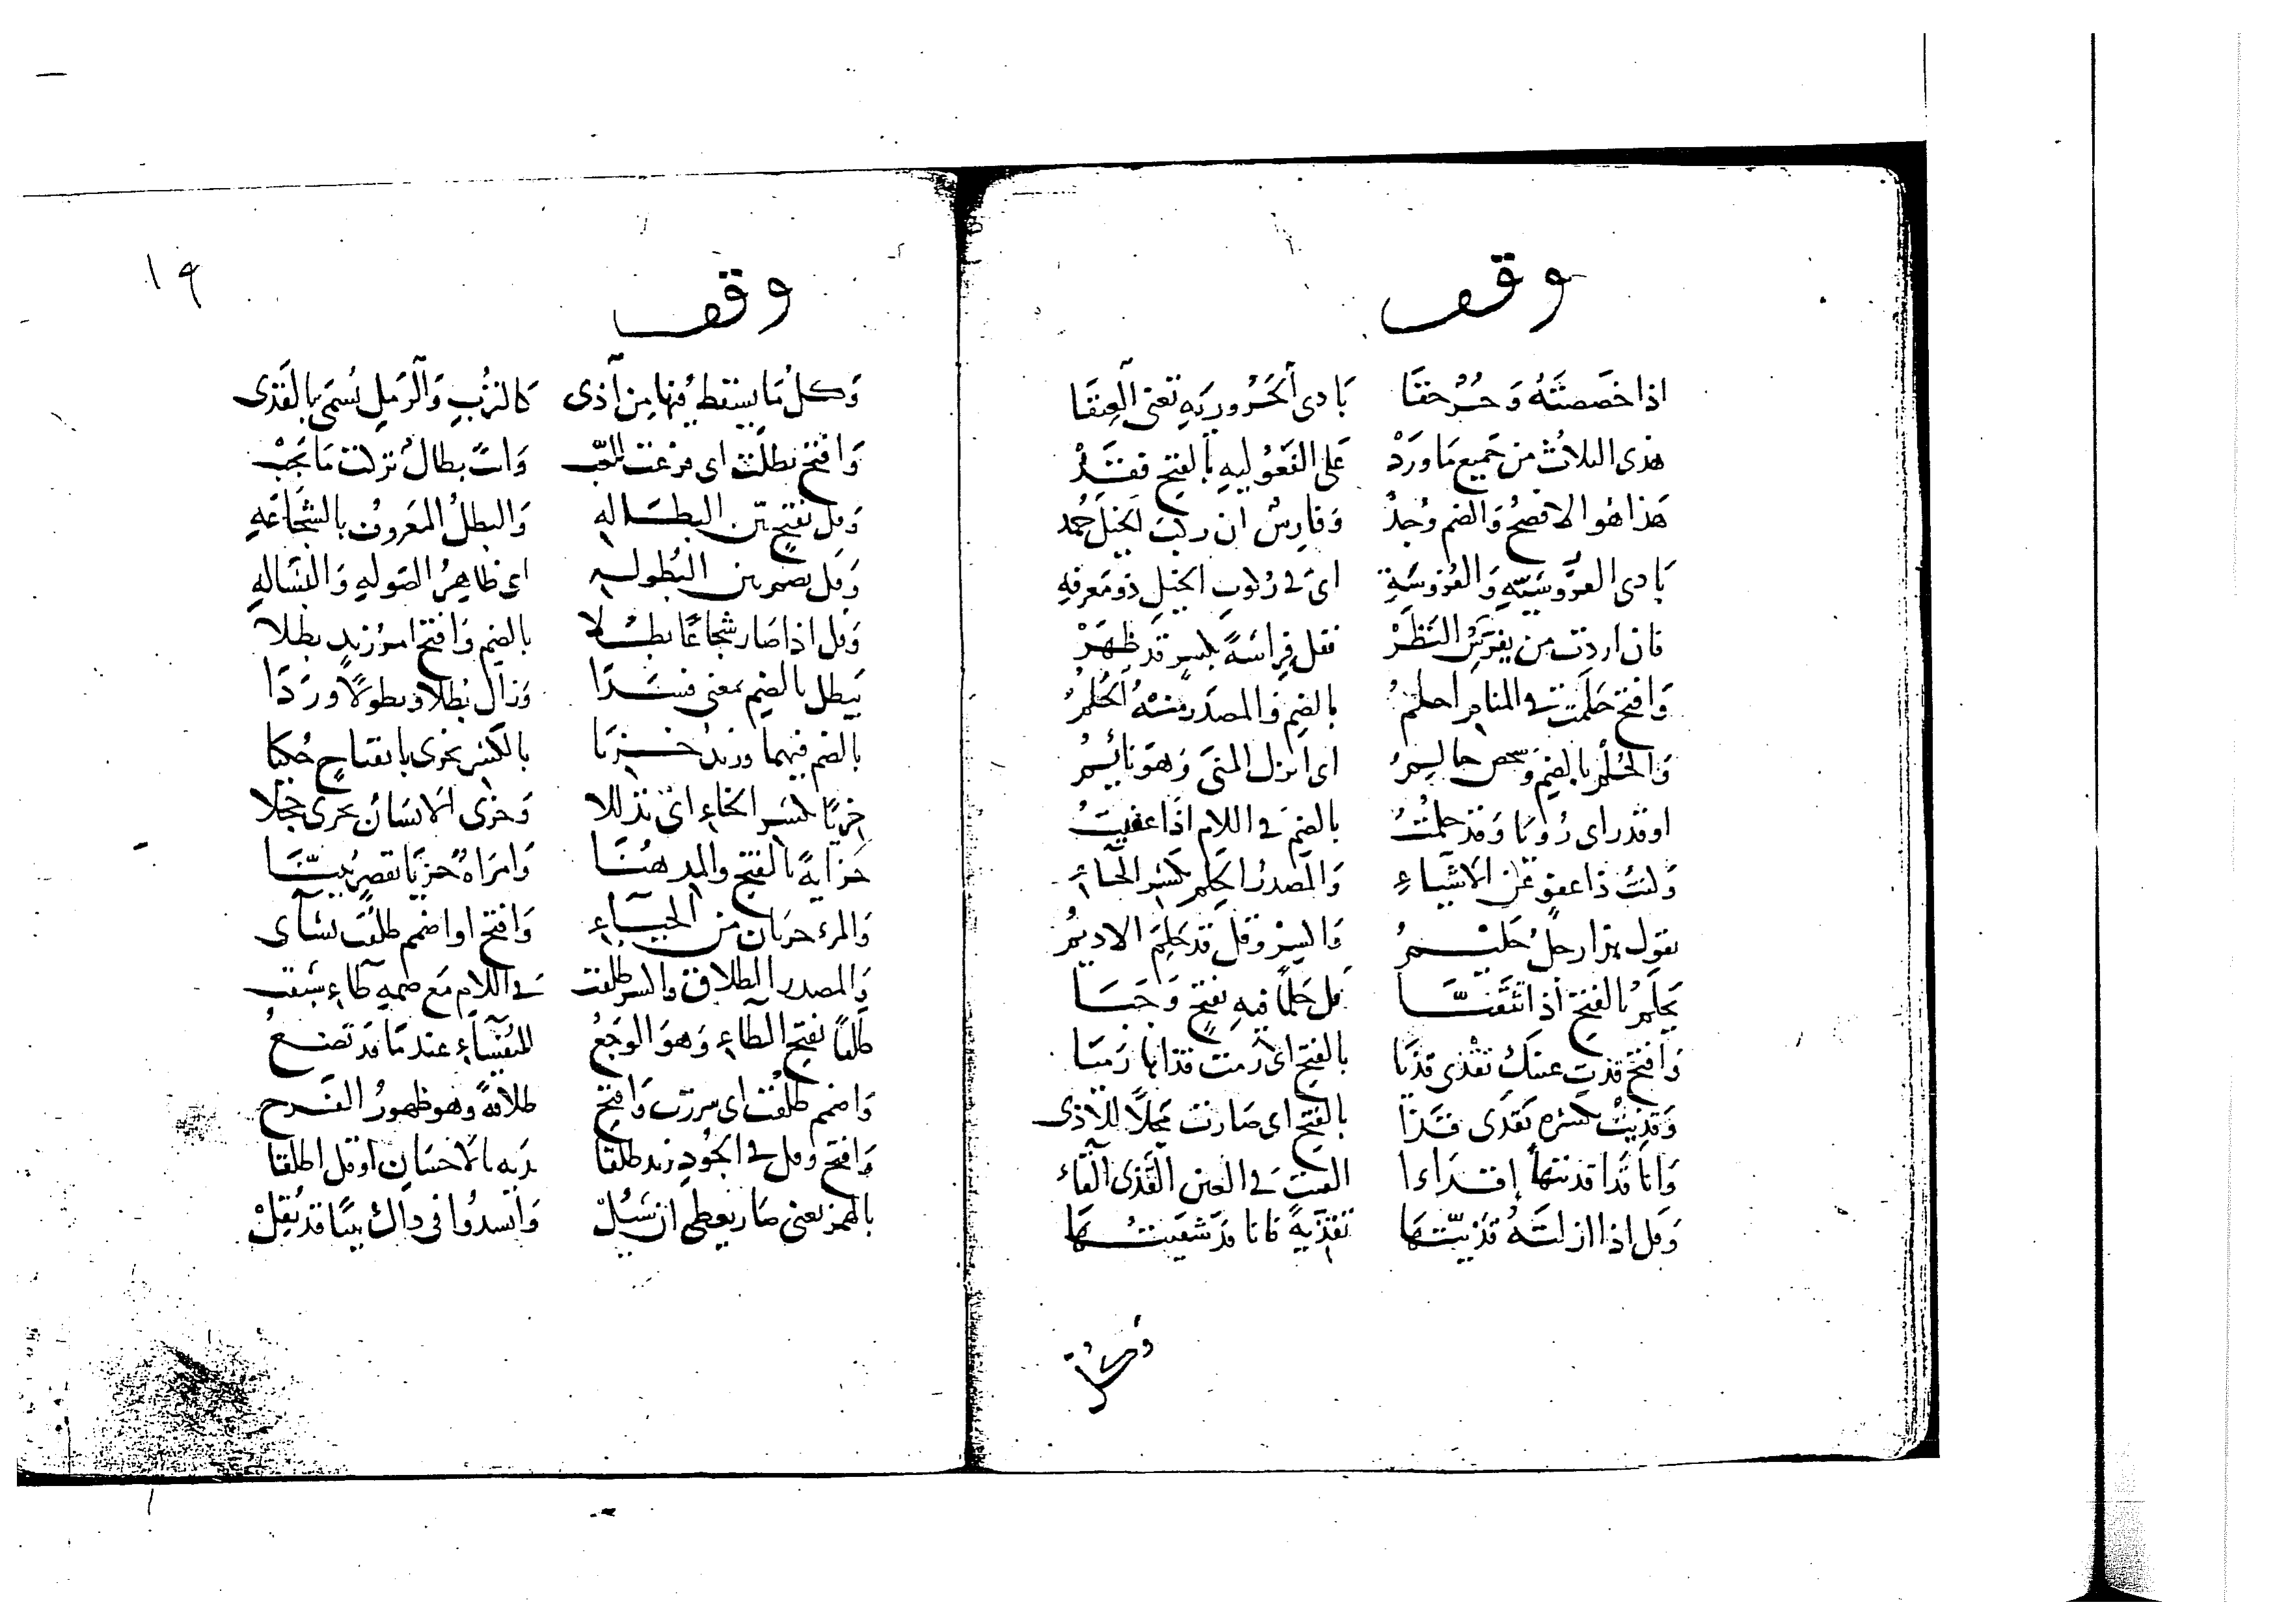 وقف
اذا خصصته وحر حقا بادى الحرورية تعنى العتقا
هذى الثلاث من جميع ما ورد على الفعولية بالفتح فقد
هذا هو الافصح والضم وجد وفارس ان ركب الخيل حمد
بادى الفروسية والفروسة اى فى ركوب الخيل ذو معرفه
فان اردت من يفرس النظر فقل فراسة بكسر قد ظهر
وافتح حلمت فى المنام احلم بالضم والمصدر منه الحلم
والحلم بالضم وشخص حالم اى انزل المنى وهو نائم
او قد راى رويا وقد حلمت بالضم فى اللام اذا عفيت
وكنت ذا عفو عن الاشياء والمصدر الحلم بكسر الحاء
تقول هذا رجل حليم واكسر وقل قد حلم الاديم
يحلم بالفتح اذا تثقبا قل حلما فيه بفتح وجبا
وافتح قذت عينك تقذى قذيا بالفتح اى رمت قذاها رميا
وقذيت بكسره تقذى قذا بالفتح اى صارت محلا للاذى
وانا قذا قذيتها إقذاءا القيت فى العين القذى القاء
وقل اذا ازلته قذيتها تقذية فانا قد شفيتها
وكل
١٩
وقف
وكل ما يسقط فيها من آذى كالترب والرمل يسمى بالقذى
وافتح بطلت اى فرغت للعب وانت بطال تركت ما يجب
وقل بفتح بين البطاله والبطل المعروف بالشجاعه
وقل بضم بين البطوله اى ظاهر الصوله والبساله
وقل اذا صار شجاعا بطلا بالضم وافتح امر زيد بطلا
يبطل بالضم بمعنى فسدا وزال بطلا وبطولا وردا
بالضم فيهما وزيد خزيا بالكسر يخزى بانفتاح حكيا
خزيا بكسر الخاء اى تذللا وخزى الانسان يخزى خجلا
خزاية بالفتح والمد هنا وامراة خزيا بقصر بينا
والمرء خزيان من الحياء وافتح او اضمم طلقت نساى
والمصدر الطلاق واكسر طلقت فى اللام مع ضمه طاء سبقت
طلقا بفتح الطاء وهو الوجع للنفساء عندما قد تضع
واضمم طلقت اى سررت وافتح طلاقة وهو ظهور الفرح
وافتح وقل فى الجود زيد طلقا يديه بالاحسان او قل اطلقا
بالهمز يعنى صار يعطى ان سئل وانشدوا فى ذاك بيتا قد نقل